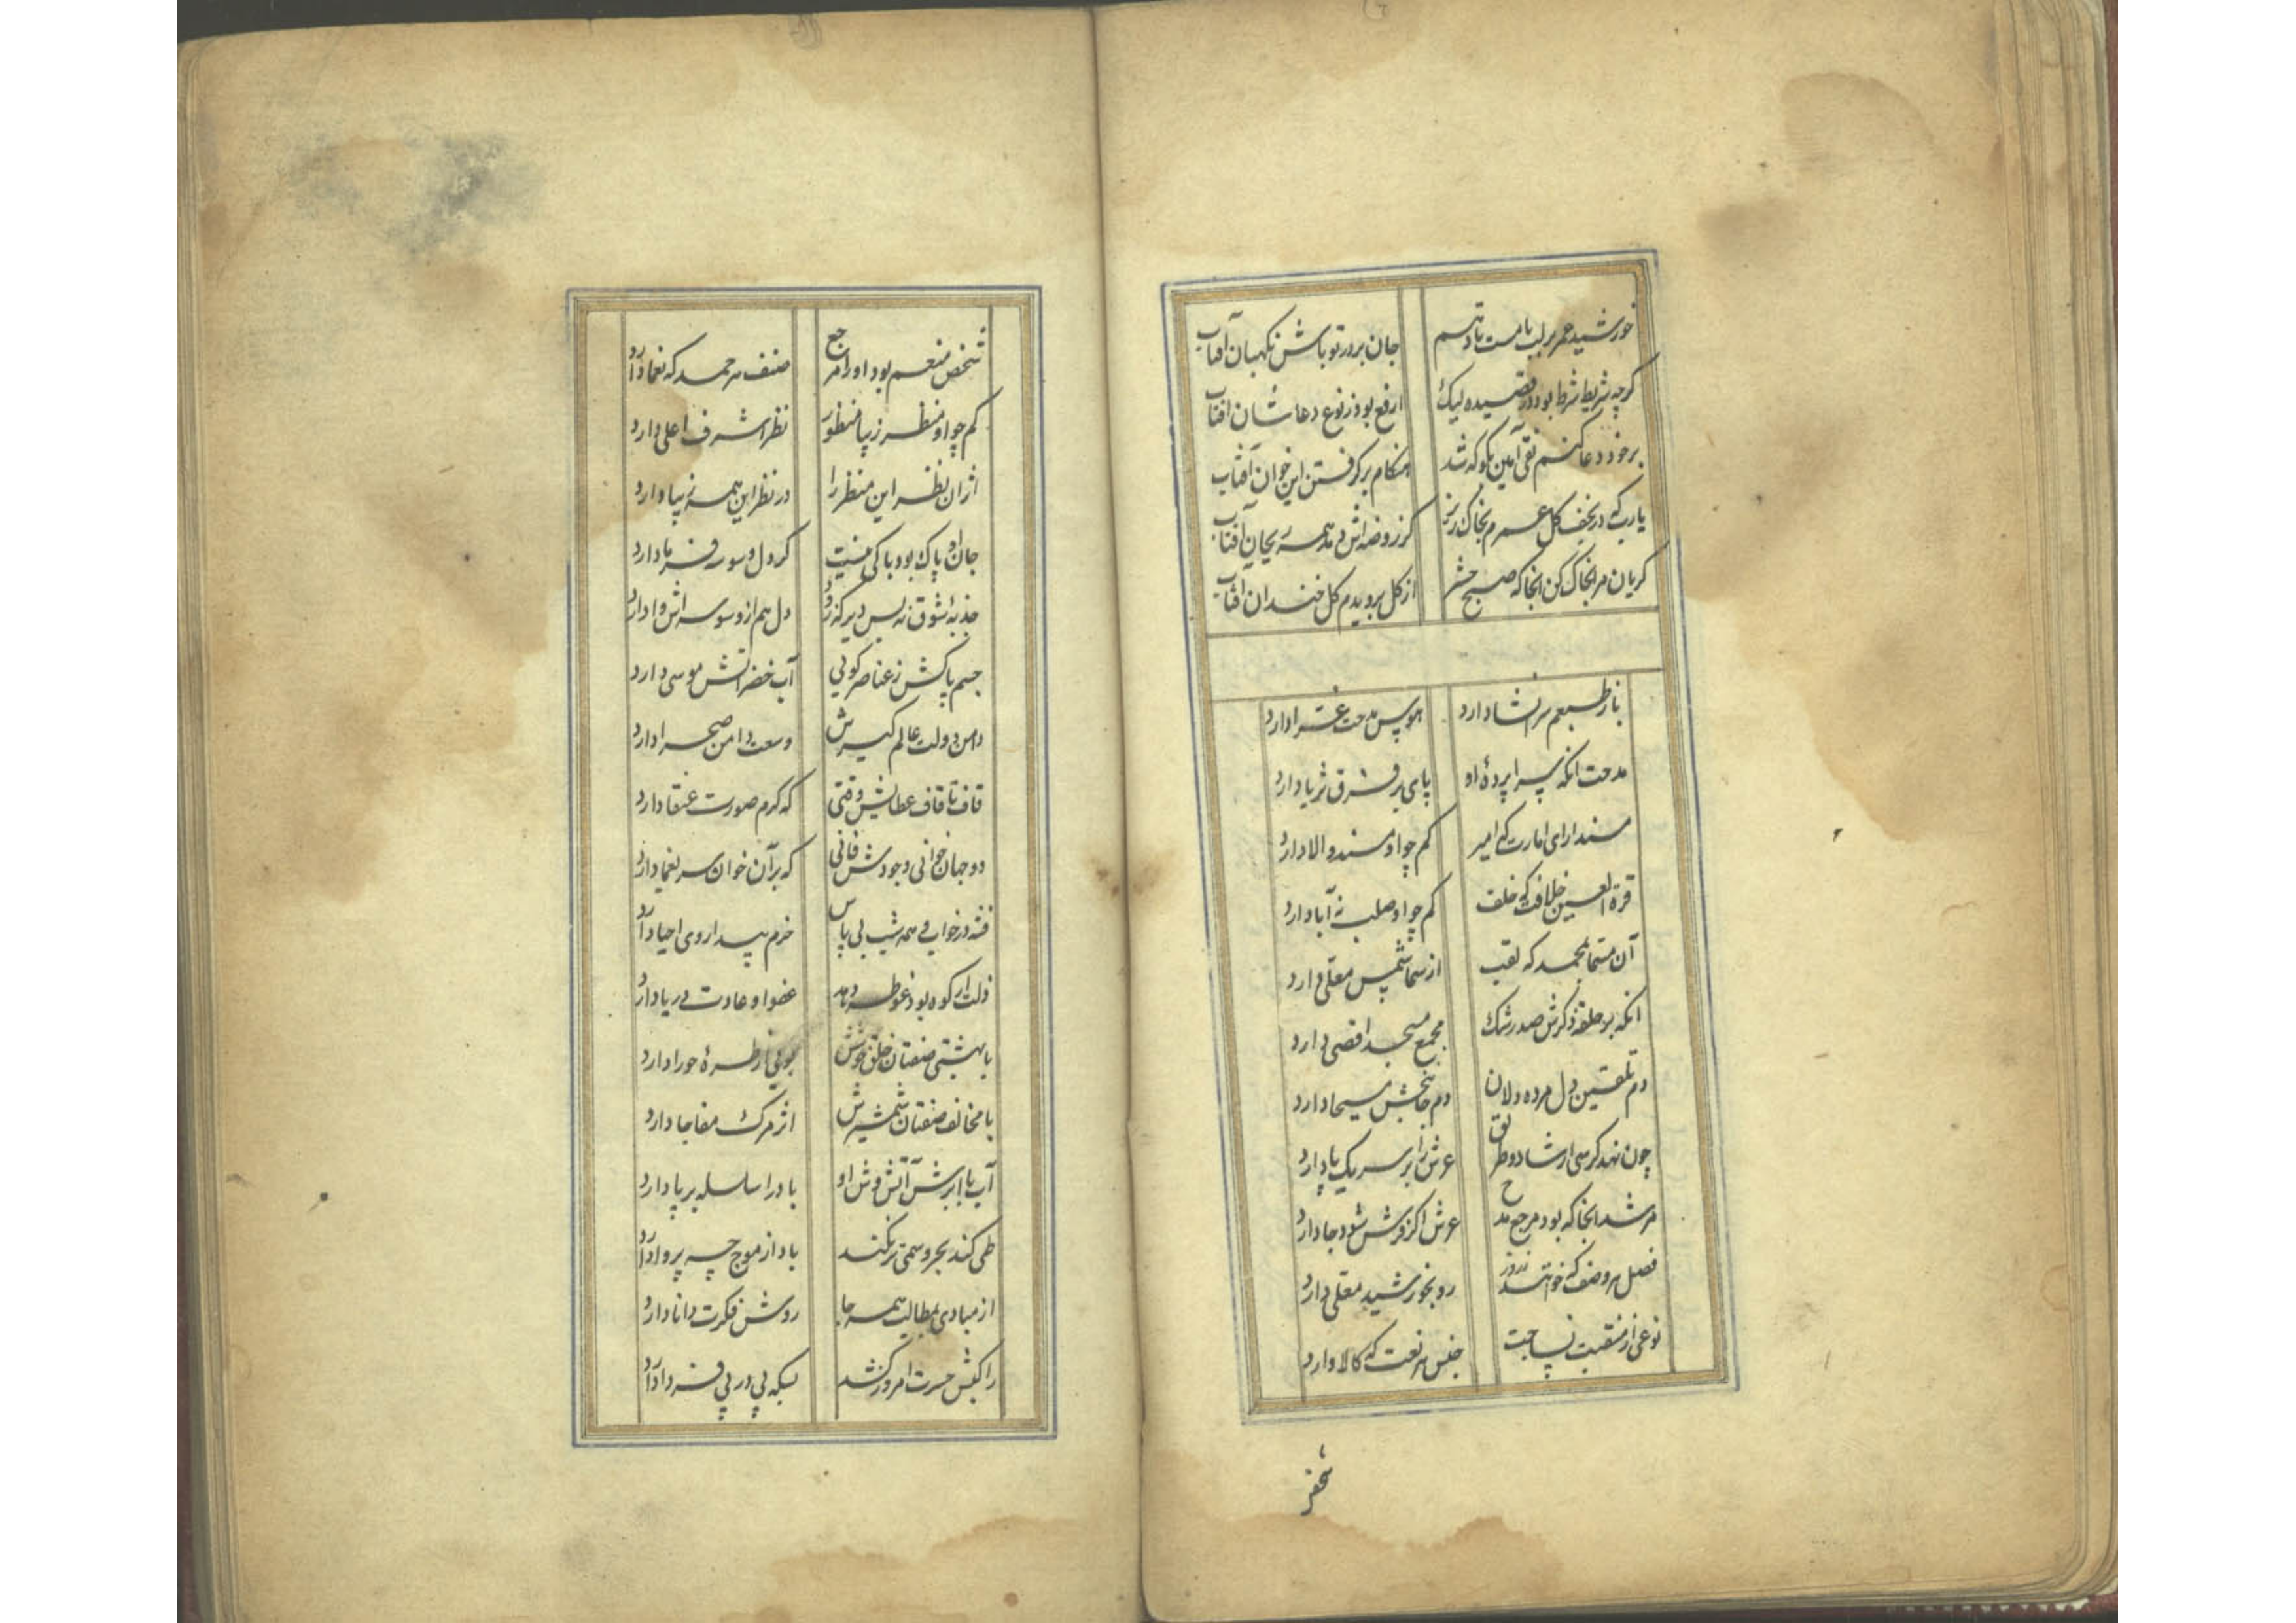 خورشید عمر بر لب بامست یا قسم جان پرور تو باش نکهبان آفتاب
کرچه شریطه شرط بود در قصیده لیک ارفع بود ز نوع دعا شان افتاب
بر خود دعا کنم نقی آمین بکو که شد هنکام بر کرفتن این خوان آفتاب
یارب که در نجف کل عمرم بخاک ریز کز روضه اش دمد همه ریحان آفتاب
کریان مرا بخاک کن انجا که صبح حشر از کل برویدم کل خندان افتاب
باز طبعم سر انشا دارد هوس مدحت غرا دارد
مدحت انکه سراپرده او پای بر فرق ثریا دارد
مسند ارای امارت که امیر کم چو او مسند والا دارد
قرة العین خلافت که خلف کم چو او صلب نه آبا دارد
آن مسما بمحمد که لقب از سما شمس معلی دارد
انکه بر حلقه ذکرش صد رشک مجمع مسجد اقصی دارد
دم تلقین دل مرده دلان دم جان بخش مسیحا دارد
چون نهد کرسی ارشاد و طریق عرش را بر سر یک پا دارد
مرشد انجا که بود مرجع مدح عرش اکر فرش شود جا دارد
فصل هر وصف که خوانند روز رو بخورشید معلی دارد
نوعی از منقبت جنس هر نعت که کالا دارد
شخص
شخص منعم بود او را مرجع صنف هر حمد که نعما دارد
کم چو او منظر زیبا منظور نظر اشرف اعلی دارد
از ان نظر این منظر را در نظر این همه زیبا دارد
جان او پاک بود باکی نیست کر دل وسوسه فرما دارد
جذبه شوق نه بس دیر کزو دل هم از وسوسه اش وا دارد
جسم پاکش ز عناصر کویی آب خضر اتش موسی دارد
دامن دولت عالم کیرش وسعت دامن صحرا دارد
قاف تا قاف عطایش وقتی که کرم صورت عنقا دارد
دو جهان خوانی و جودش فانی که بر آن خوان سر نعما دارد
فتنه در خواب و همه شب بی پاس خرم بیدار وی احیا دارد
ذلت ار کوه بود غوطه دهد عفو او عادت دریا دارد
با بهشتی صفتان خلق خوشش بویی از طره حورا دارد
با مخالف صفتان شمشیرش اثر مرک مفاجا دارد
آب با ابرش آتش وش او باد را سلسله بر پا دارد
طی کند بحر و سمش تر نکند باد از موج چه پروا دارد
از مبادی بمطالب همه جا روش فکرت دانا دارد
راکبش حسرت امروز نکشد بسکه پی در پی فردا دارد